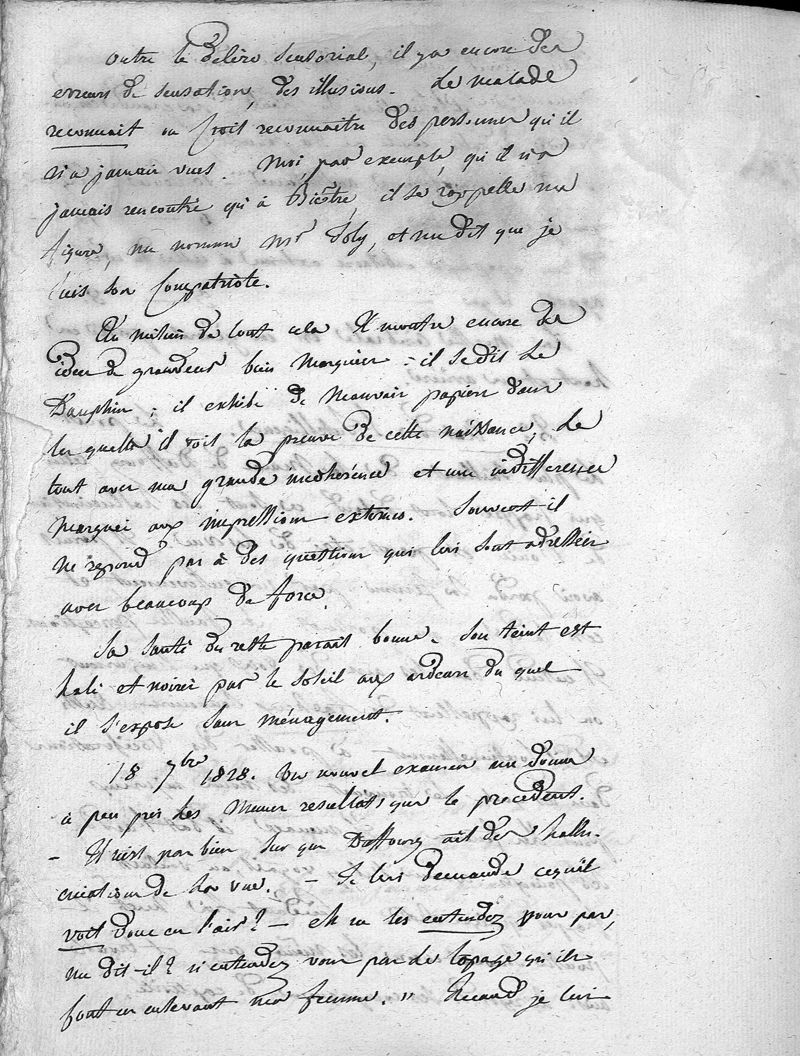 outre le délire sensorial, il y a encore des
erreurs de sensation, des illusions. Le malade
reconnait ou croit reconnaitre des personnes qu'il
n'a jamais vues. Moi, par exemple, qu'il n'a
jamais rencontré qu'à Bicêtre, il se rappelle ma
figure, me nomme Mr Joly, et me dit que je
suis son Compatriote.
Au milieu de tout cela Il montre encore des
idées de grandeurs bien marquées : il se dit le
Dauphin ; il exhibe de mauvais papiers dans
les quelles il voit la preuve de cette naissance, Le
tout avec une grande incohérence et une indifference
marquée aux impressions externes. Souvent il
ne repond pas à des questions qui lui sont adressées
avec beaucoup de force.
Sa santé du reste parait bonne. Son teint est
hâlé et noirci par le soleil aux ardeurs du quel
il s'expose sans ménagement.
18 7bre 1828. Un nouvel examen me donne
à peu près les memes resultats que le precedent.
- Il n'est pas bien sur que Daffourg ait des hallu-
cinations de la vue. - Je lui demande ce qu'il
voit donc en l'air ? - eh ne les entendez vous pas,
me dit-il ? n'entendez vous pas le tapage qu'ils
font en enlevant ma femme. " Quand je lui